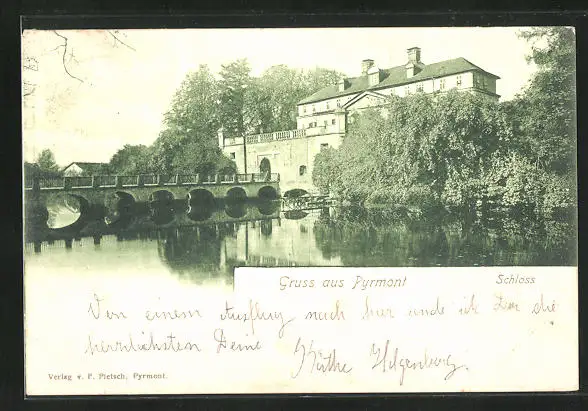 Gruss aus Pyrmont
Schloss
Von einem Ausflug nach hier sende ich Dir die
herrlichsten
Käthe Hilgenberg.
Verlag v. P. Pietsch, Pyrmont.